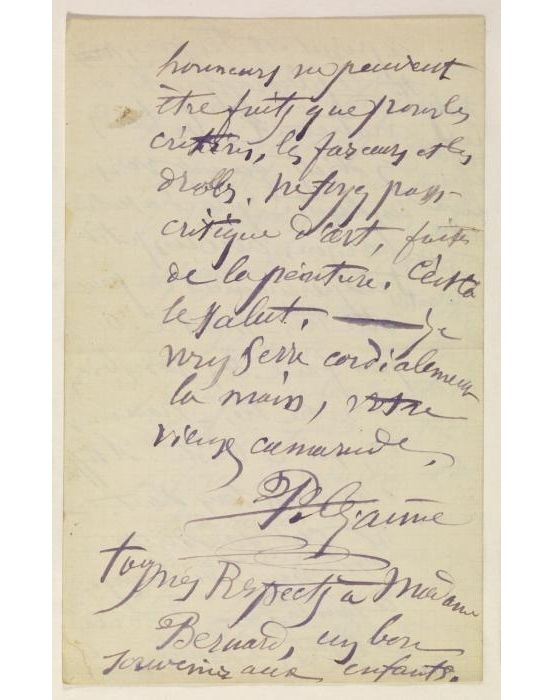 honneurs ne peuvent
être faits que pour les
crétins, les farceurs et les
drolles. Ne soyez pas
critique d'art, faites
de la peinture. C'est là
le salut. — Je
vous serre cordialement
la main, votre
vieux camarade,
P. Cézanne
tous mes Respects à Madame
Bernard, un bon
souvenir aux enfants.